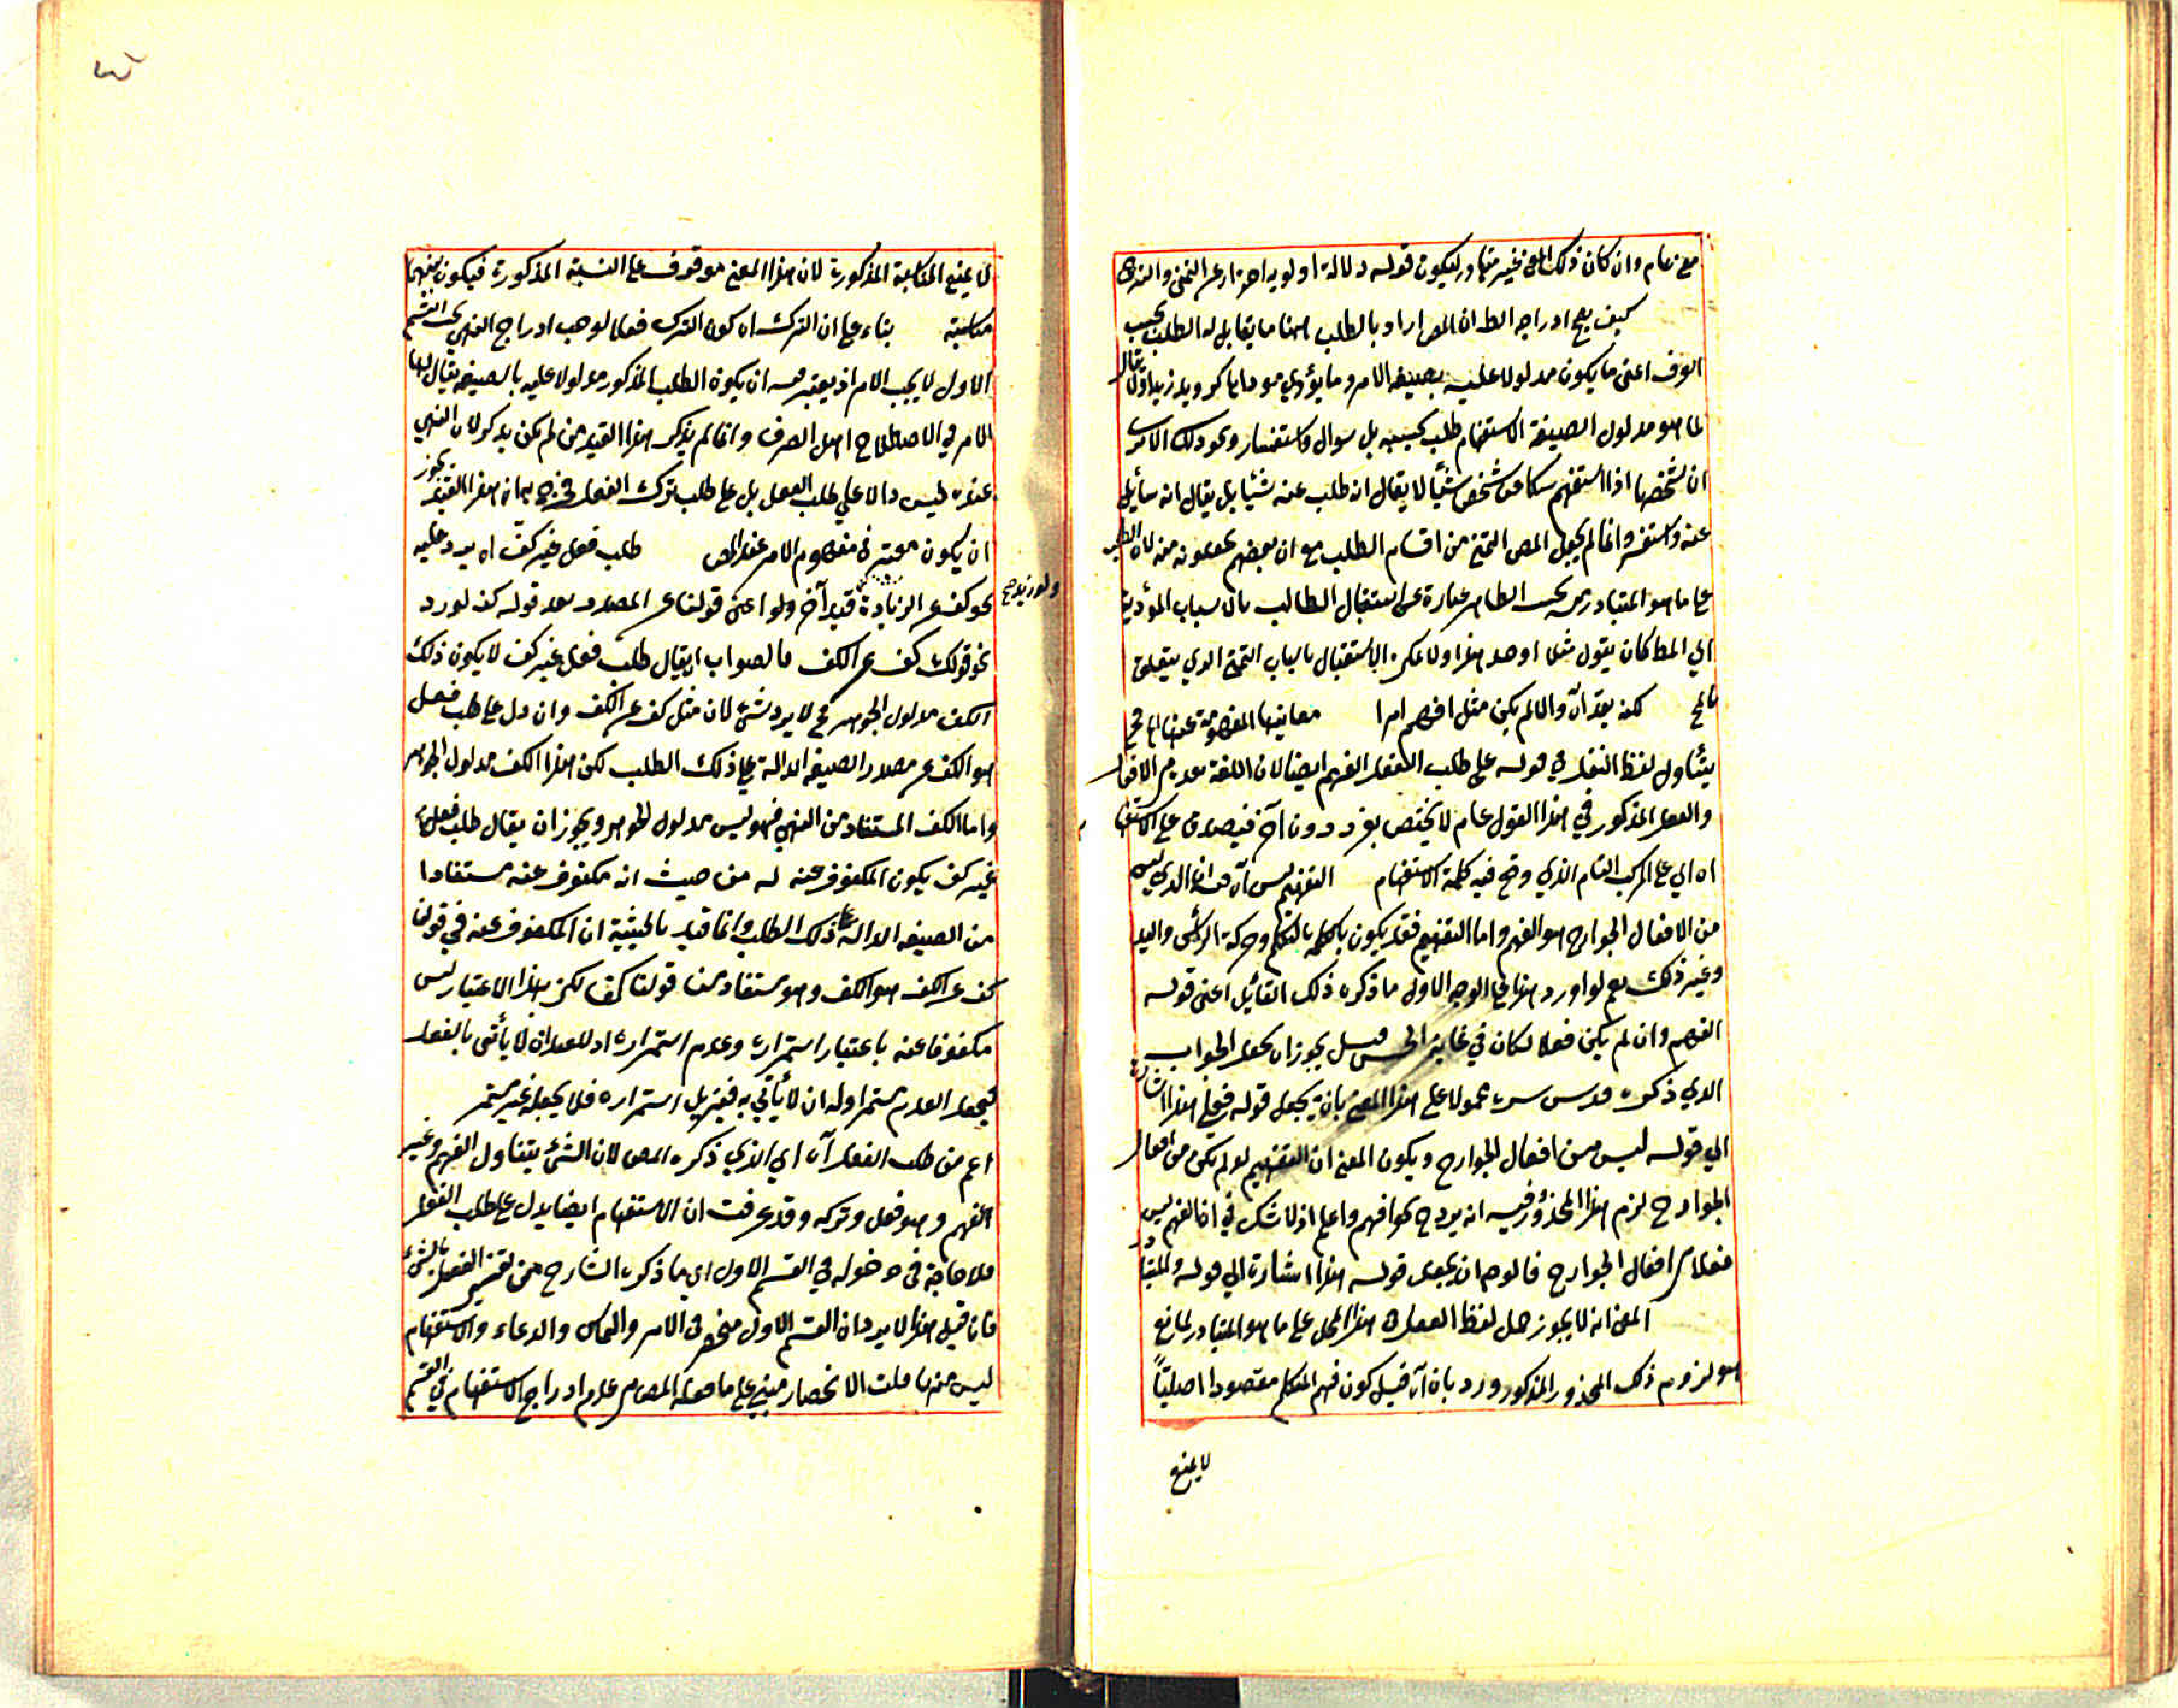 مع عام وان كان ذلك المعنى غير متبادر ليكون قوله دلالة اولوية احترازا عن التمنى والترجى
كيف يصح ادراجه الخ ان المص اراد بالطلب ههنا ما يقابل له الطلب بحسب
العرف اعنى ما يكون مدلولا عليه بصيغة الامر وما يؤدي مؤداها كرويد زيدا ولا يقال
لما هو مدلول الصيغة الاستفهام طلب بحسبه بل سوال واستفسار ونحو ذلك الا ترى
ان شخصا اذا استفهم من شخص شيئا لا يقال انه طلب عنه شيئا بل يقال انه سأيل
عنه واستفسر وانما لم يجعل المص التمنى من اقسام الطلب مع ان بعضهم يعدونه منه لان الطلب
على ما هو المتبادر منه بحسب الظاهر عبارة عن استقبال الطالب بالاسباب المؤدية
الي المطـ كان يقول مثلا اوجد هذا ولا يمكن الاستقبال باسباب التمنى الذي يتعلق
لكنه بعد آه والا لم يكن مثل افهم امرا معانيها المفهومة عنها اه فح
يتناول لفظ الفعل في قوله على طلب الفعل الفهم ايضا لان اللغة
والفعل المذكور في هذا القول عام لا يختص بفرد دون آخر فيصدق على الاستفهام
اه اي على المركب التام الذي وقع فيه كلمة الاستفهام التفهيم ليس آه فيه ان الذي ليس
من الافعال الجوارح هو الفهم واما التفهيم فقد يكون بالتكلم وحركة الرأس واليد
وغير ذلك نعم لو اورد هذا على الوجه الاول ما ذكره ذلك القائيل اعنى قوله
الفهم وان لم يكن فعلا لكان في غاية الحسن قيل يجوز ان يجعل الجواب
الذي ذكره قدس سره محمولا على هذا المعنى بان يجعل قوله فعلى هذا اشارة
الي قوله ليس من افعال الجوارح ويكون المعنى ان التفهيم لو لم يكن من افعال
الجوارح لزم هذا المحذور فيه انه يرد ح نحو افهم واعلم اذ لا شك في ان الفهم ليس
فعلا من افعال الجوارح فالوجه ان يجعل قوله هذا اشارة الي قوله والمتبادر
المعنى انه لا يجوز حمل لفظ الفعل في هذا المحل على ما هو المتبادر لمانع
هو لزوم ذلك المحذور المذكور ورد بان آه قيل كون فهم المتكلم مقصودا اصليًا
لا يمنع
لا يمنع المناسبة المذكورة لان هذا المعنى موقوف على النسبة المذكورة فيكون بينهما
مناسبة بناء على ان الترك اه كون الترك فعلا لوجب ادراج النهي تحت القسم
الاول لا يجب الامر اذ يعتبر فيه ان يكون الطلب المذكور مدلولا عليه بالصيغة يقال لها
الامر في الاصطلاح اهل الصرف وانما لم يذكر هذا القيد من لم يكن يذكر لان النهي
عنده ليس دالا على طلب الفعل بل على طلب ترك الفعل فخرج بها هذا القيد يجوز
ان يكون معتبر فى مفهوم الامر عند المص طلب فعل غير كف اه يرد عليه
نحو كف عن الزيادة قيد آخر ولو اعنى قولنا عن المصدر بعد قوله كف لورد
ولورد نحو
نحو قولك كف عن الكف فالصواب ان يقال طلب فعل غير كف لا يكون ذلك
الكف مدلول الجوهر فح لا يرد شئ لان مثل كف عن الكف وان دل على طلب فعل
هو الكف عن مصدر الصيغة الدالة على ذلك الطلب لكن هذا الكف مدلول الجوهر
واما الكف المستفاد من النهي فهو ليس مدلول الجوهر ويجوز ان يقال طلب فعل
غير كف يكون المكفوف عنه له من حيث انه مكفوف عنه مستفادا
من الصيغة الدالة على ذلك الطلب وانما قيد بالحيثية ان المكفوف عنه في قولنا
كف عن الكف هو الكف وهو مستفاد من قولنا كف لكن بهذا الاعتبار ليس
مكفوفا عنه باعتبار استمراره وعدم استمراره اذ للعبد ان لا يأتى بالفعل
فيجعل العدم مستمرا وله ان لا يأتي به فيزيل استمراره فلا يجعله غير مستمر
اعم من طلب الفعل آه اي الذي ذكره المص لان الشئ يتناول الفهم وغير
الفهم وهو فعل وتركه وقد عرفت ان الاستفهام ايضا يدل على طلب الفعل
فلا حاجة فى دخوله في القسم الاول اي ما ذكره الشارح من تفسير الفعل بالشئ
فان قيل هذا لا يرد ان القسم الاول منحصر فى الامر والتماس والدعاء والاستفهام
ليس منها قلت الانحصار مبني على ما فعله المص من عدم ادراج الاستفهام في القسم